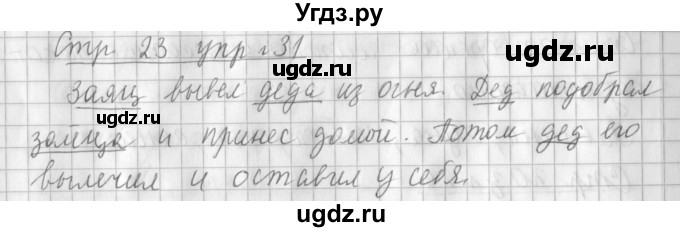 Угдз.ру
Стр 23 упр 31
ugdz.ru ugdz.ru
Заяц вывел деда из огня. Дед подобрал
ugdz.ru
зайца и принес домой. Потом дед его
вылечил и оставил у себя.
ugdz.ru ugdz.ru